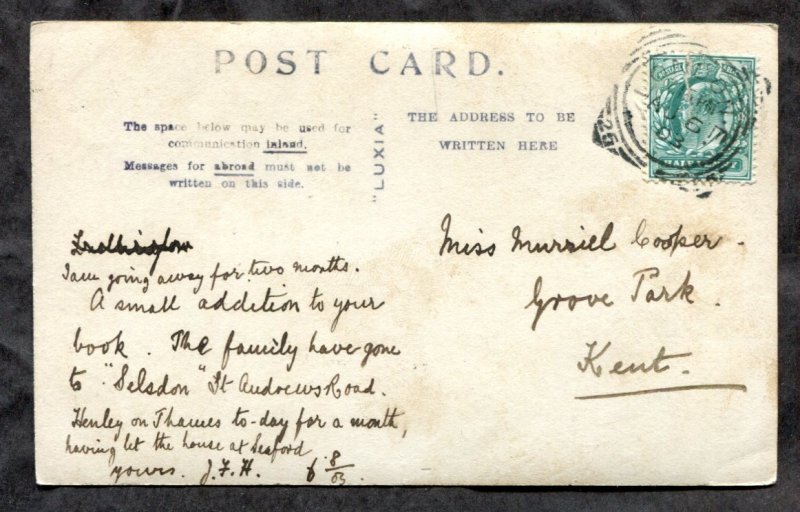 POST CARD.
The space below may be used for
communication inland.
Messages for abroad must not be
written on this side.
"LUXIA"
THE ADDRESS TO BE
WRITTEN HERE
I am going away for two months.
A small addition to your
book. The family have gone
to "Selsdon" St Andrews Road.
Henley on Thames to-day for a month,
having let the house at Seaford
yours. J.F.H. 6 8/03
Miss Murriel Cooper.
Grove Park.
Kent.
AU 6
03
25